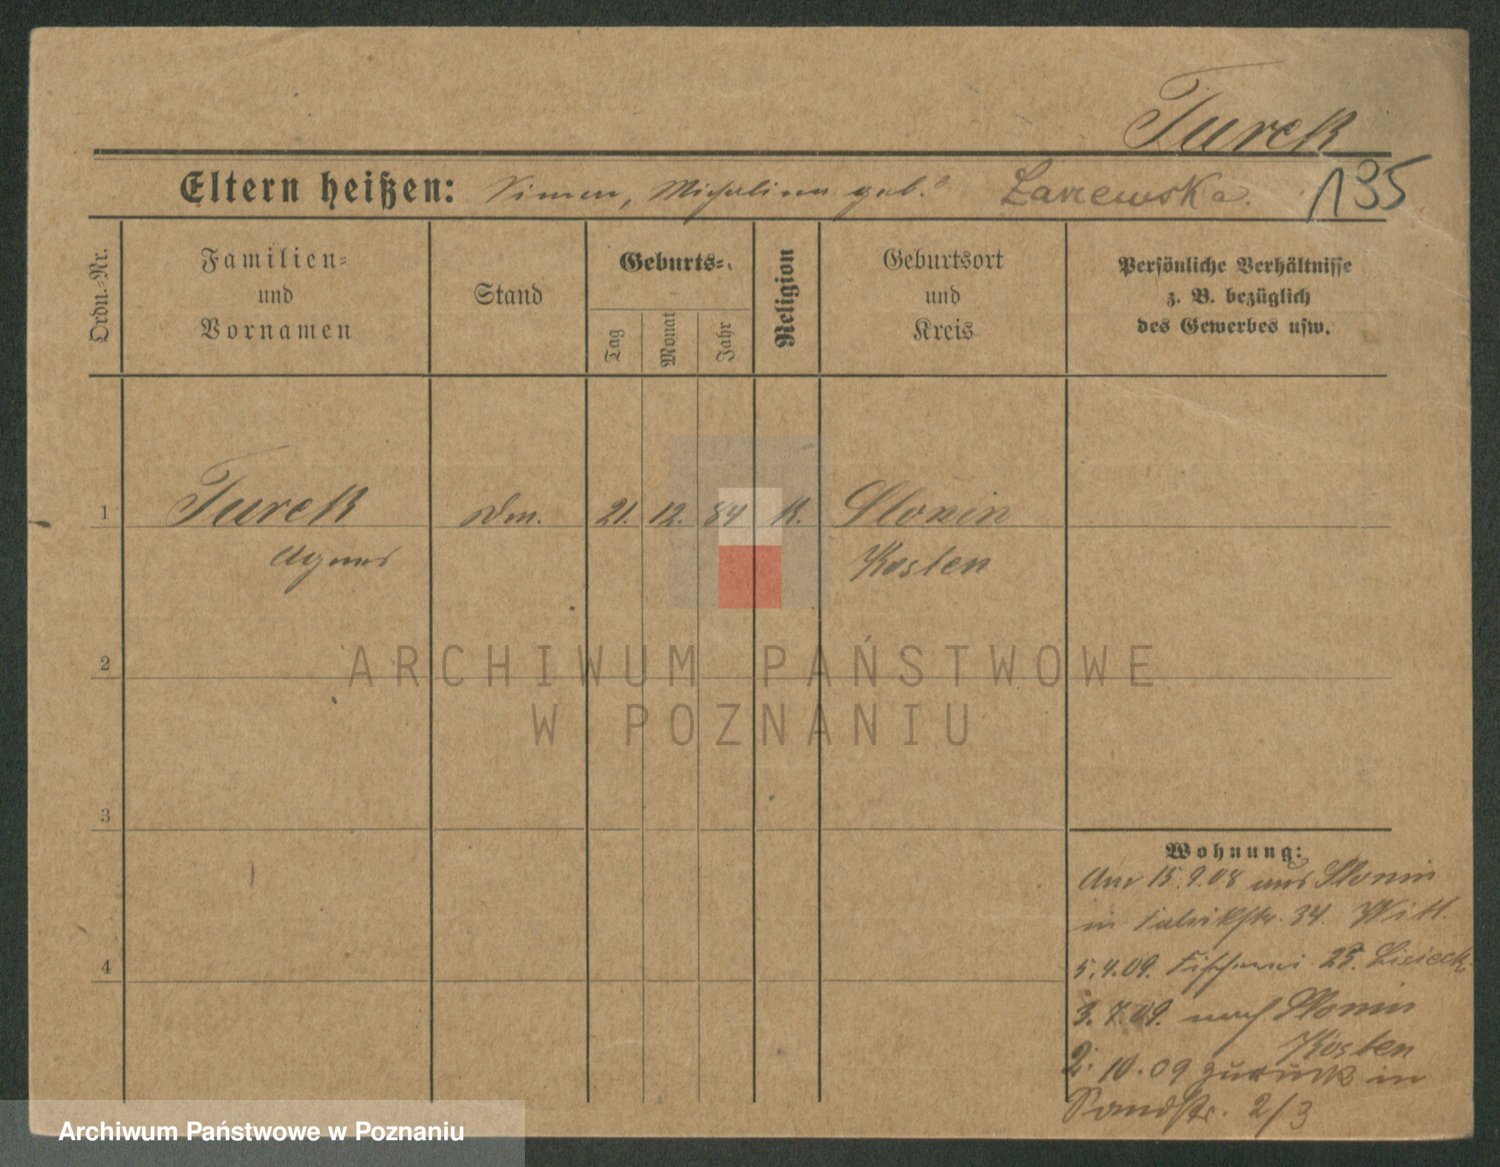 Turek
Eltern heißen: Simon, Michalina geb. Zarzewska.
135
Ordn.-Nr.
Familien-
und
Vornamen
Stand
Geburts-
Tag
Monat
Jahr
Religion
Geburtsort
und
Kreis
Persönliche Verhältnisse
z. B. bezüglich
des Gewerbes usw.
1 Turek 21. 12. 84 K. Slonin
Agnes Kosten
2
3
4
Wohnung:
15.9.08 aus Slonin
in Fabrikstr. 34. Witt.
5.4.09. Fischerei 25. Lisiecki
3.7.09. nach Slonin
Kosten
2.10.09 zurück in
Sandstr. 2/3
ARCHIWUM PAŃSTWOWE
W POZNANIU
Archiwum Państwowe w Poznaniu